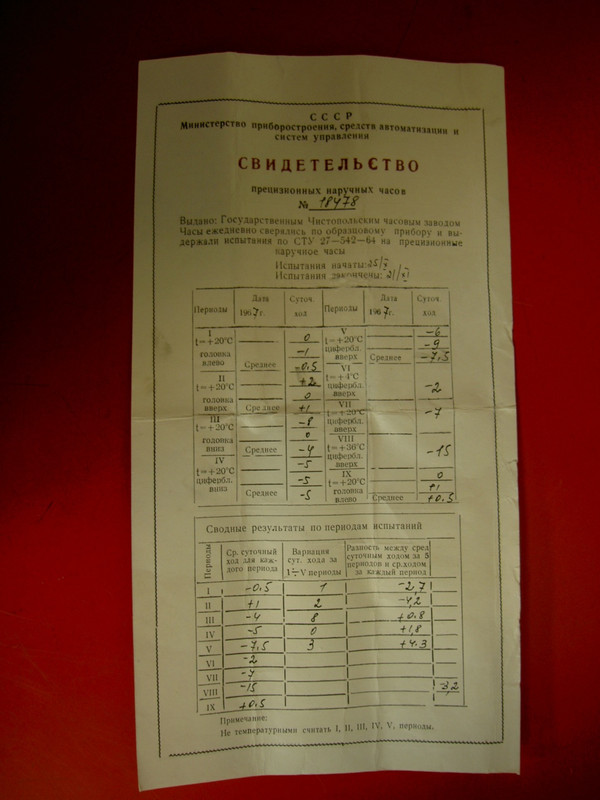 СССР
Министерство приборостроения, средств автоматизации и
систем управления
СВИДЕТЕЛЬСТВО
прецизионных наручных часов
№ 18478
Выдано: Государственным Чистопольским часовым заводом
Часы ежедневно сверялись по образцовому прибору и вы-
держали испытания по СТУ 27—542—64 на прецизионные
наручное часы
Испытания начаты: 25/X
Испытания закончены: 21/XI
Периоды Дата 1967г. Суточ. ход Периоды Дата 1967г. Суточ. ход
I V -6
t=+20°C 0 t=+20°C -9
головка -1 цифербл.
влево Среднее -0.5 вверх Среднее -7,5
II +2 VI
t=+20°C t=+4°C
головка 0 цифербл. -2
вверх Среднее +1 вверх
III -8 VII -7
t=+20°C 0 t=+20°C
цифербл.
вверх
головка VIII
вниз Среднее -4 t=+36°C -15
IV -5 цифербл.
вверх
t=+20°C IX 0
цифербл. -5 t=+20°C +1
вниз Среднее -5 головка
влево Среднее +0.5
Сводные результаты по периодам испытаний
Периоды Ср. суточный Вариация Разность между сред
ход для каж- сут. хода за суточным ходом за 5
дого периода I÷V периоды периодов и ср.ходом
за каждый период
I -0.5 1 -2,7
II +1 2 -4,2
III -4 8 +0.8
IV -5 0 +1,8
V -7,5 3 +4.3
VI -2
VII -7
VIII -15 -3,2
IX +0.5
Примечание:
Не температурными считать I, II, III, IV, V, периоды.